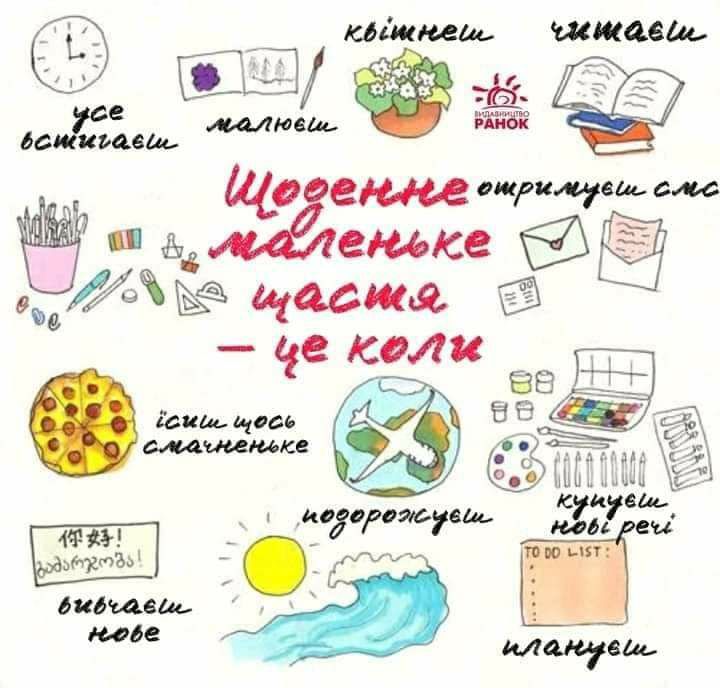 квітнеш
читаєш
усе
встигаєш
малюєш
ВИДАВНИЦТВО
РАНОК
Щоденне
маленьке
щастя
– це коли
отримуєш смс
їсиш щось
смачненьке
подорожуєш
купуєш
нові речі
你好!
გამარჯობა!
вивчаєш
нове
TO DO LIST:
плануєш